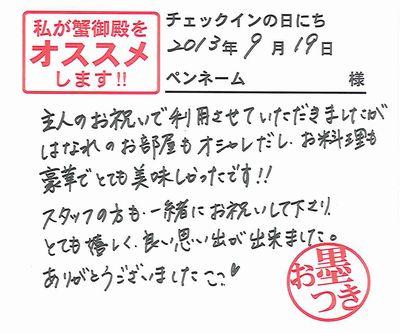 私が蟹御殿を
オススメ
します!!
チェックインの日にち
2013年9月19日
ペンネーム 様
主人のお祝いで利用させていただきましたが
はなれのお部屋もオシャレだし、お料理も
豪華でとても美味しかったです!!
スタッフの方も一緒にお祝いして下さり
とても嬉しく、良い思い出が出来ました。
ありがとうございました
お墨つき